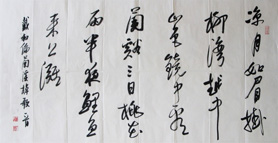 凉月如眉挂
柳湾越中
山色镜中看
兰溪三日桃花
雨半夜鲤鱼
来上滩
戴叔伦兰溪棹歌